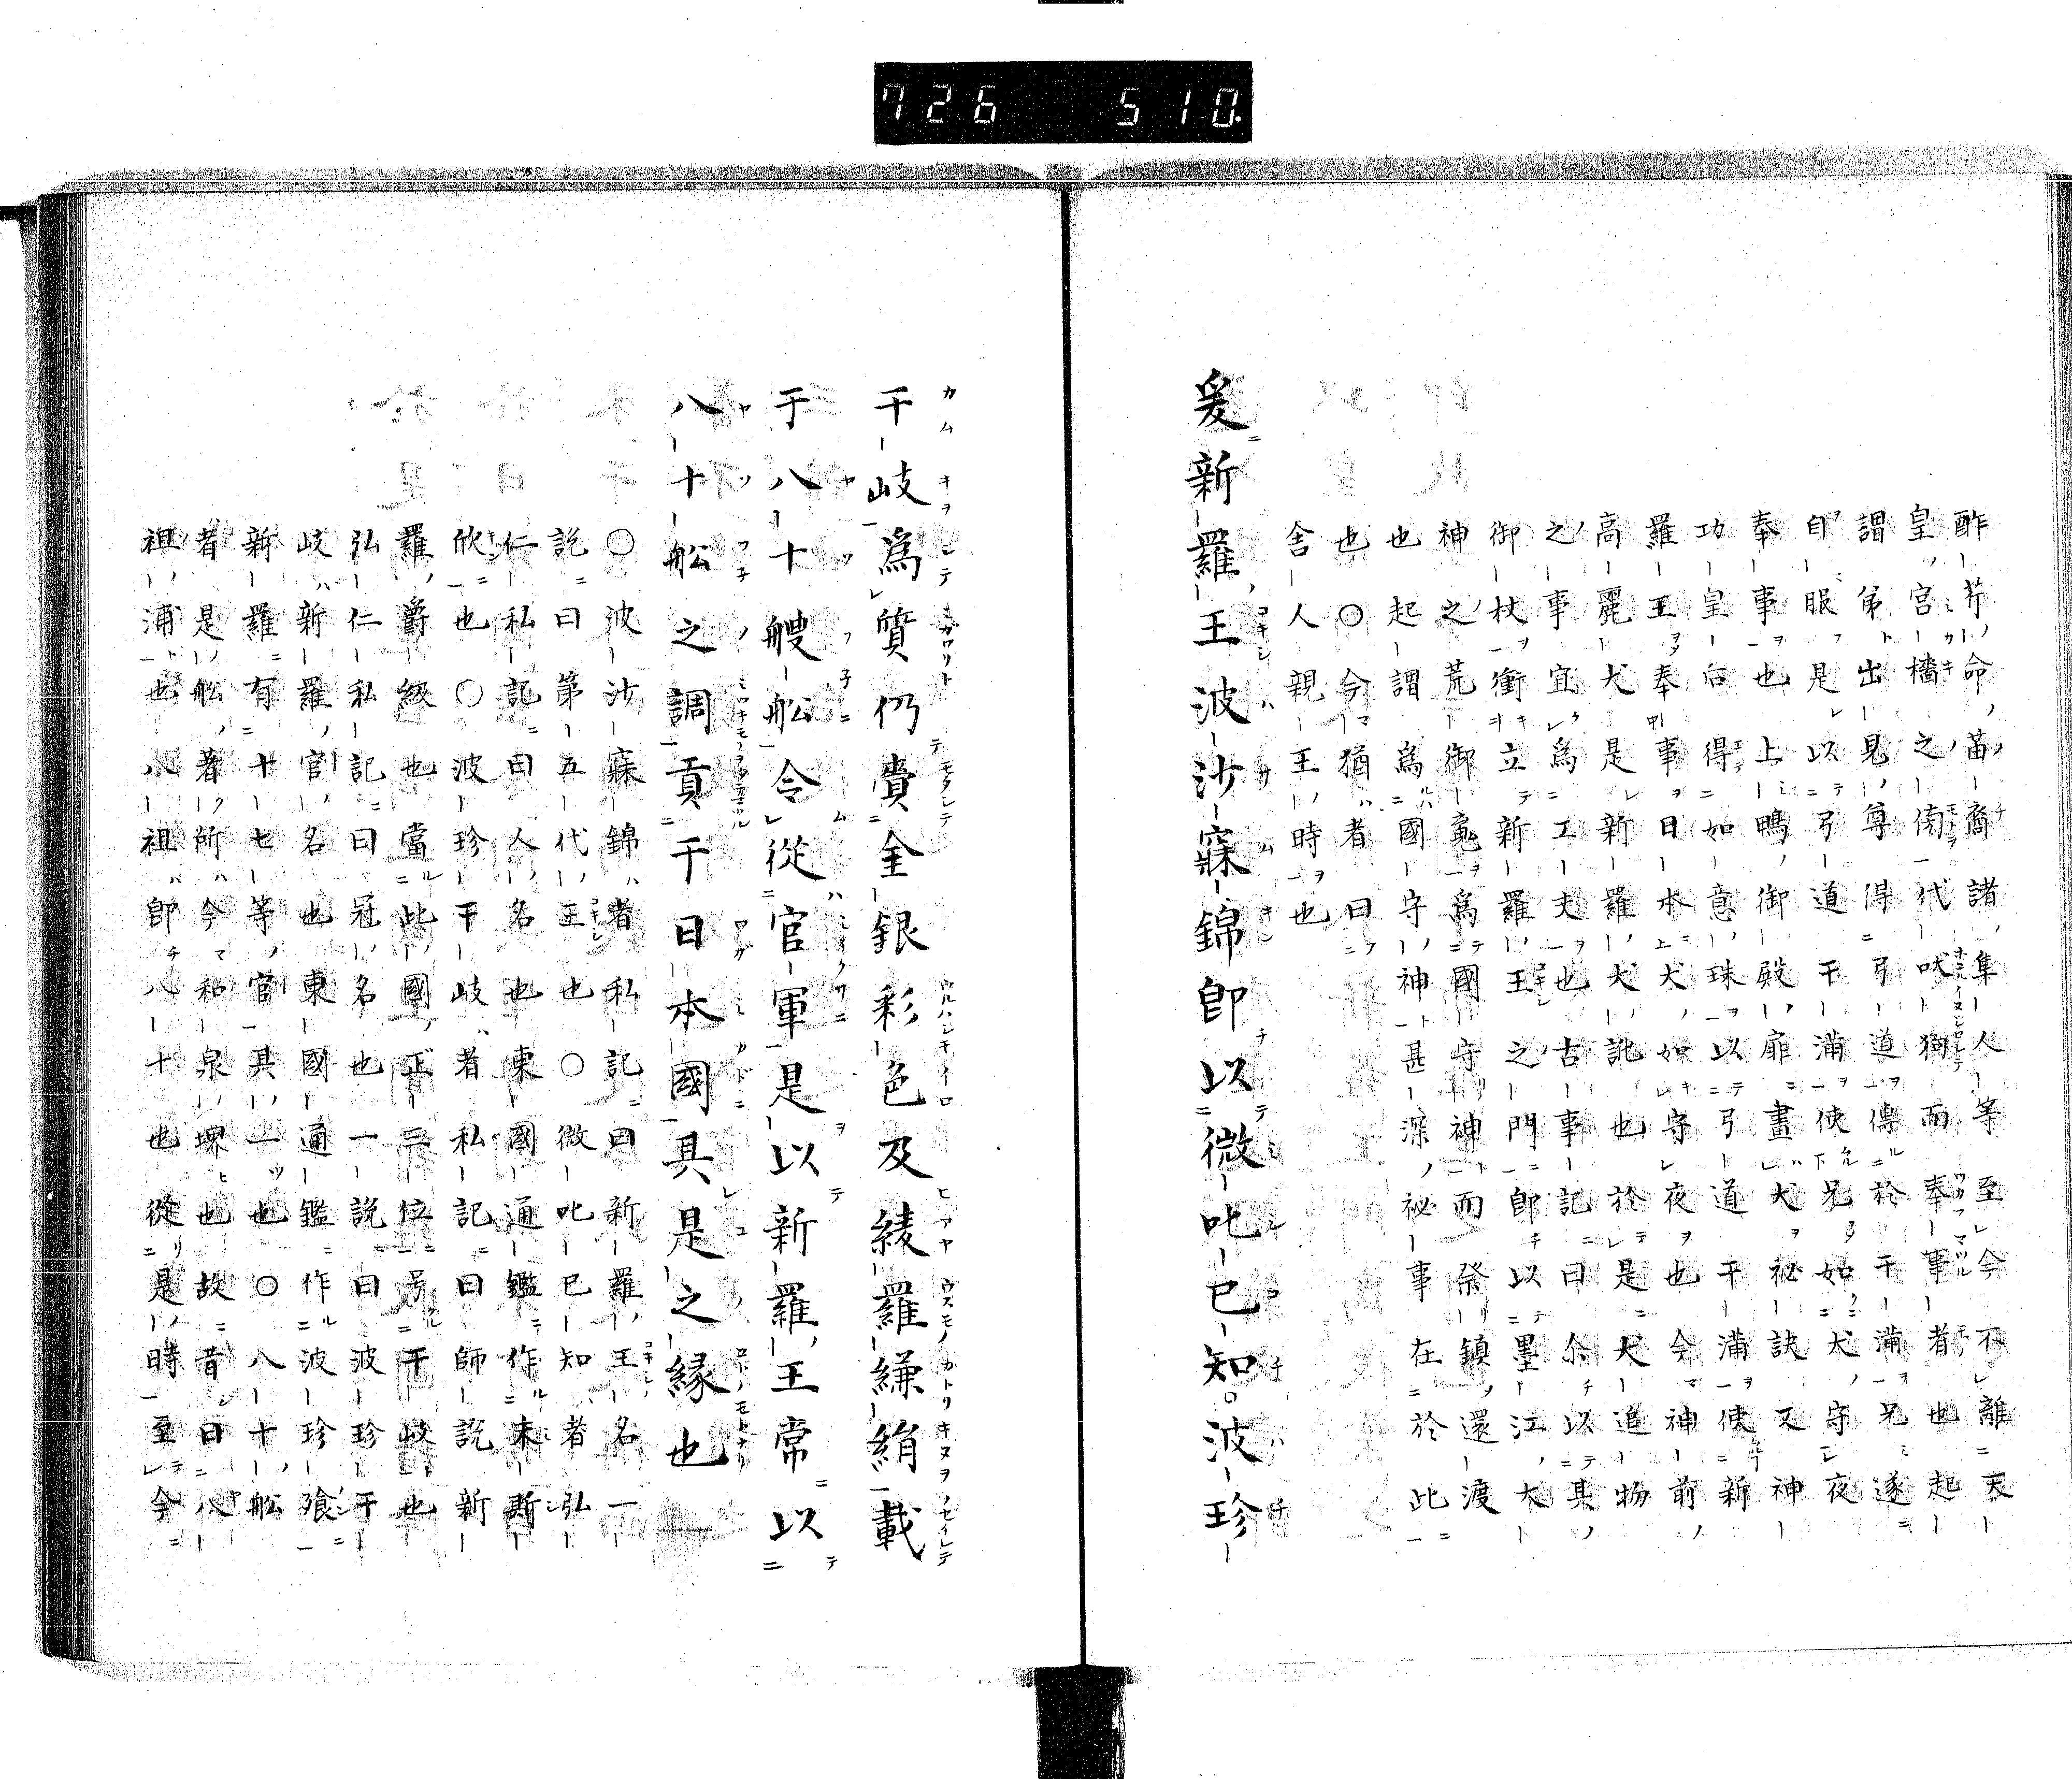 726 510
酢芹命ノ苗裔諸ノ隼人等至今不離天
皇ノ宮墻之傍代吠狗而奉事者也起
謂弟出見ノ尊得弓道傳於干満兄遂
自服是以弓道干満使兄如犬ノ守夜
奉事也上鴨ノ御殿ノ扉畫犬秘訣又神
功皇后得如意ノ珠以弓道干満使新
羅王奉事日本犬ノ如守夜也今神前ノ
高麗犬是新羅ノ犬訛也於是犬追物
之事宜為工夫也古事記曰尒以其ノ
御杖衝立新羅ノ王之門即以墨江ノ大
神之荒御䰟為國守神而祭鎮ノ還渡
也起謂為國守ノ神甚深ノ秘事在於此
也〇今猶者曰
舎人親王ノ時也
爰新羅ノ王波沙寐錦即以微叱已知波珍
干岐為質仍賷金銀彩色及綾羅縑絹載
于八十艘舩令從官軍是以新羅ノ王常以
八十舩之調貢于日本國其是之縁也
〇波沙寐錦者私記曰新羅ノ王名一
説曰第五代ノ王也〇微叱已知者弘
仁私記曰人ノ名也東國通鑑作未斯
欣也〇波珍干岐者私記曰師説新
羅ノ爵級也當此ノ國ノ正三位号干岐也
弘仁私記曰冠ノ名也一説曰波珍干
岐新羅ノ官ノ名也東國通鑑作波珍飡
新羅有十七等ノ官其ノ一也〇八十ノ舩
者是ノ舩ノ著ク所今和泉ノ堺也故昔曰八
祖ノ浦也八祖即八十也從是ノ時至今